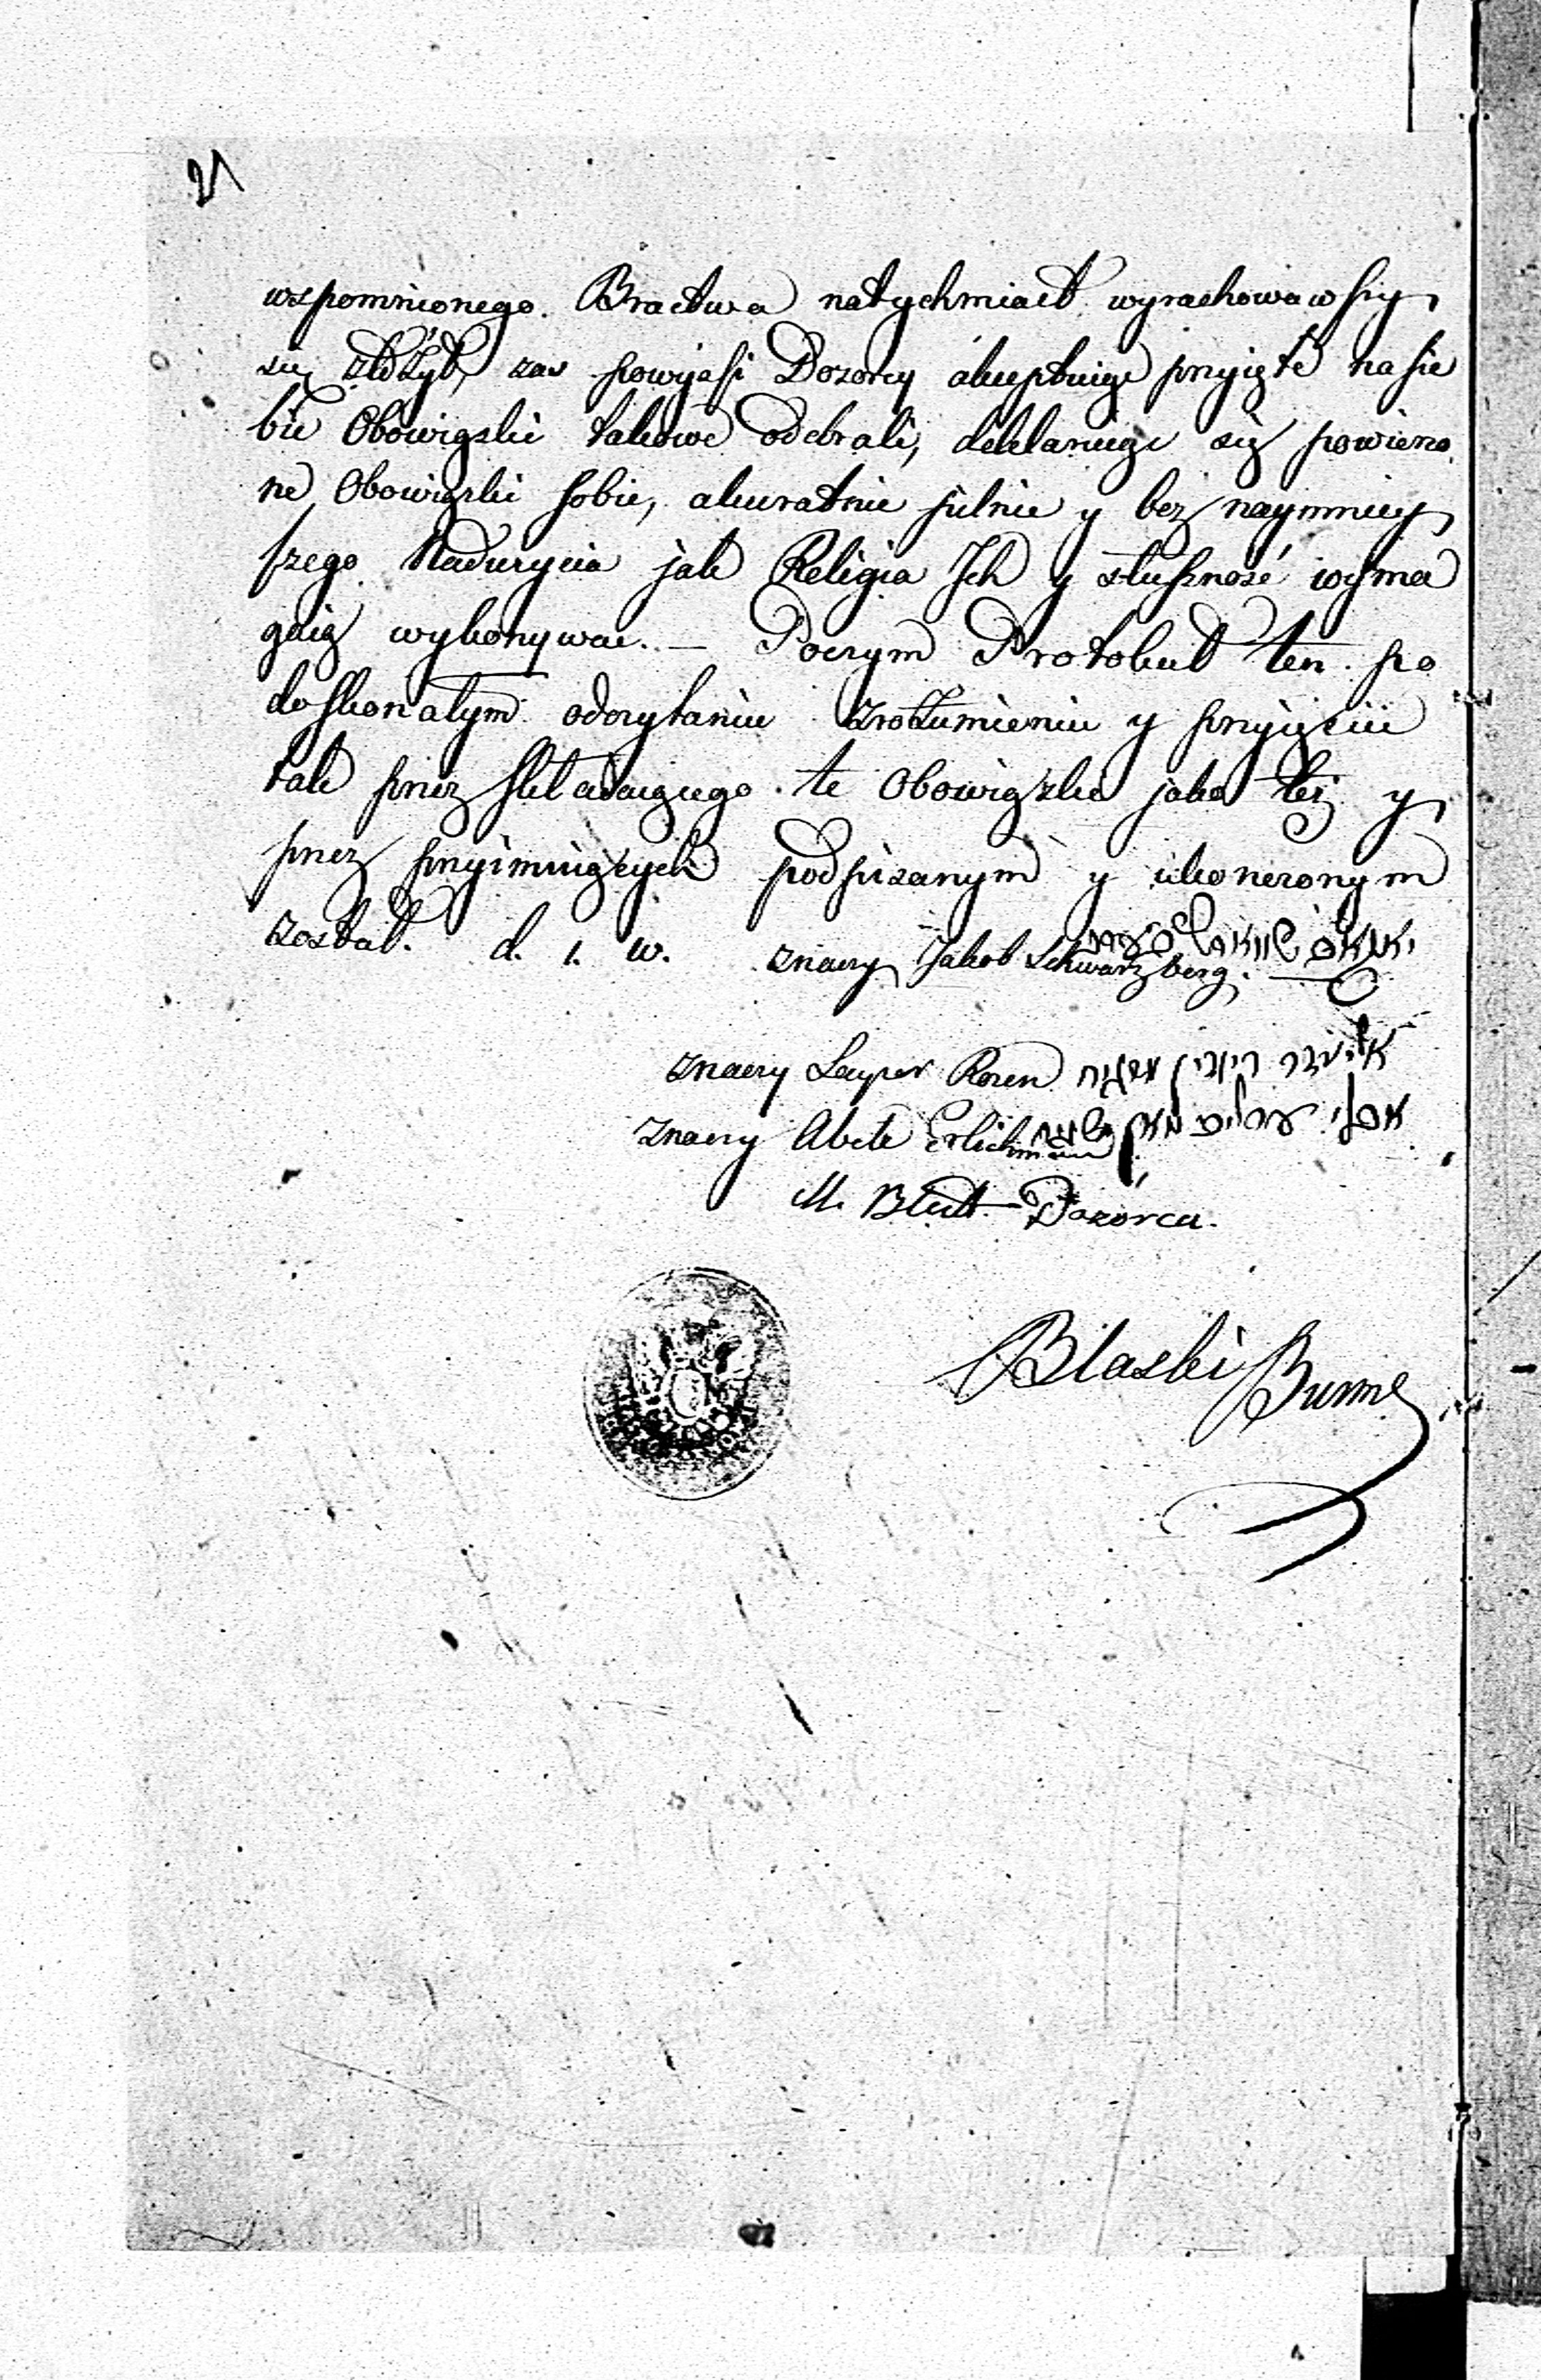 21
wspomnionego. Bractwa natychmiast wyrachowawszy
się złożył, zaś powyżsi Dozorcy akceptuiąc przyięte na sie
bie Obowiązki takowe odebrali, deklaruiąc się powierzo
ne Obowiązki sobie, akuratnie pilnie y bez naymniey
szego Nadużycia jak Religia Ich y słuszność wyma
gaią wykonywać. — Poczym Protokuł ten po
doskonałym odczytaniu zrozumieniu y przyięciu
tak przez składaiącego te Obowiązki jako też y
przez przyimuiących podpisanym y ukończonym
został. d. i. w. znaczy Jakob Schwarzberg. יאקאב שווארצבערג
znaczy Rozen אליעזר רויזין
znaczy Abele Erlichman עהרליכמאן
M. Blutt Dozorca.
Blaski Burm